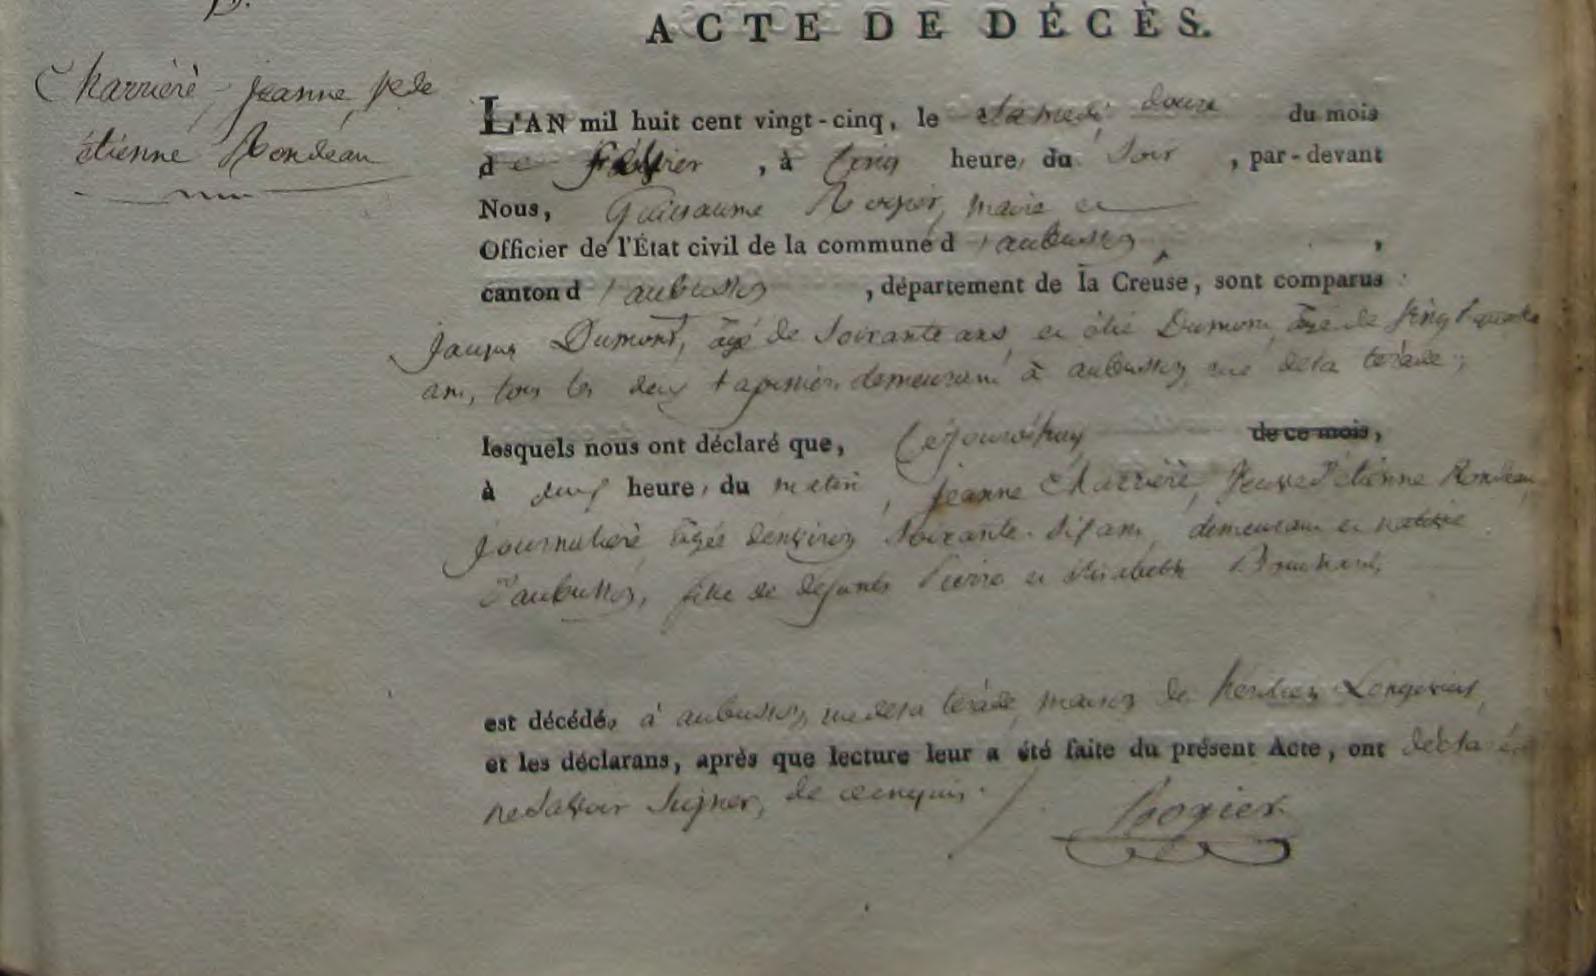 ACTE DE DÉCÈS.
Charriérè, jeanne, ve de
étienne Rondeau
L'AN mil huit cent vingt-cinq, le samedi douze du mois
de février, à cinq heure, du soir, par-devant
Nous, Guillaume Rogier, maire et
Officier de l'État civil de la commune d'aubusson,
canton d'aubusson, département de la Creuse, sont comparus
jacques Dumont, âgé de soixante ans, et Dumont, âgé de
ans, tous les deux tapissiers demeurant à aubusson, rue de la teràde,
lesquels nous ont déclaré que, cejourd'huy de ce mois,
à deux heure, du matin, jeanne Charriérè, veuve d'étienne Rondeau
journalierè, âgée denviron soixante-six ans, demeurant et native
d'aubusson, fille de defunts Pierre et élisabeth
est décédée à aubusson, rue de la teràde, maison de
et les déclarans, après que lecture leur a été faite du présent Acte, ont déclaré
ne savoir signer, de ce enquis.
Rogier